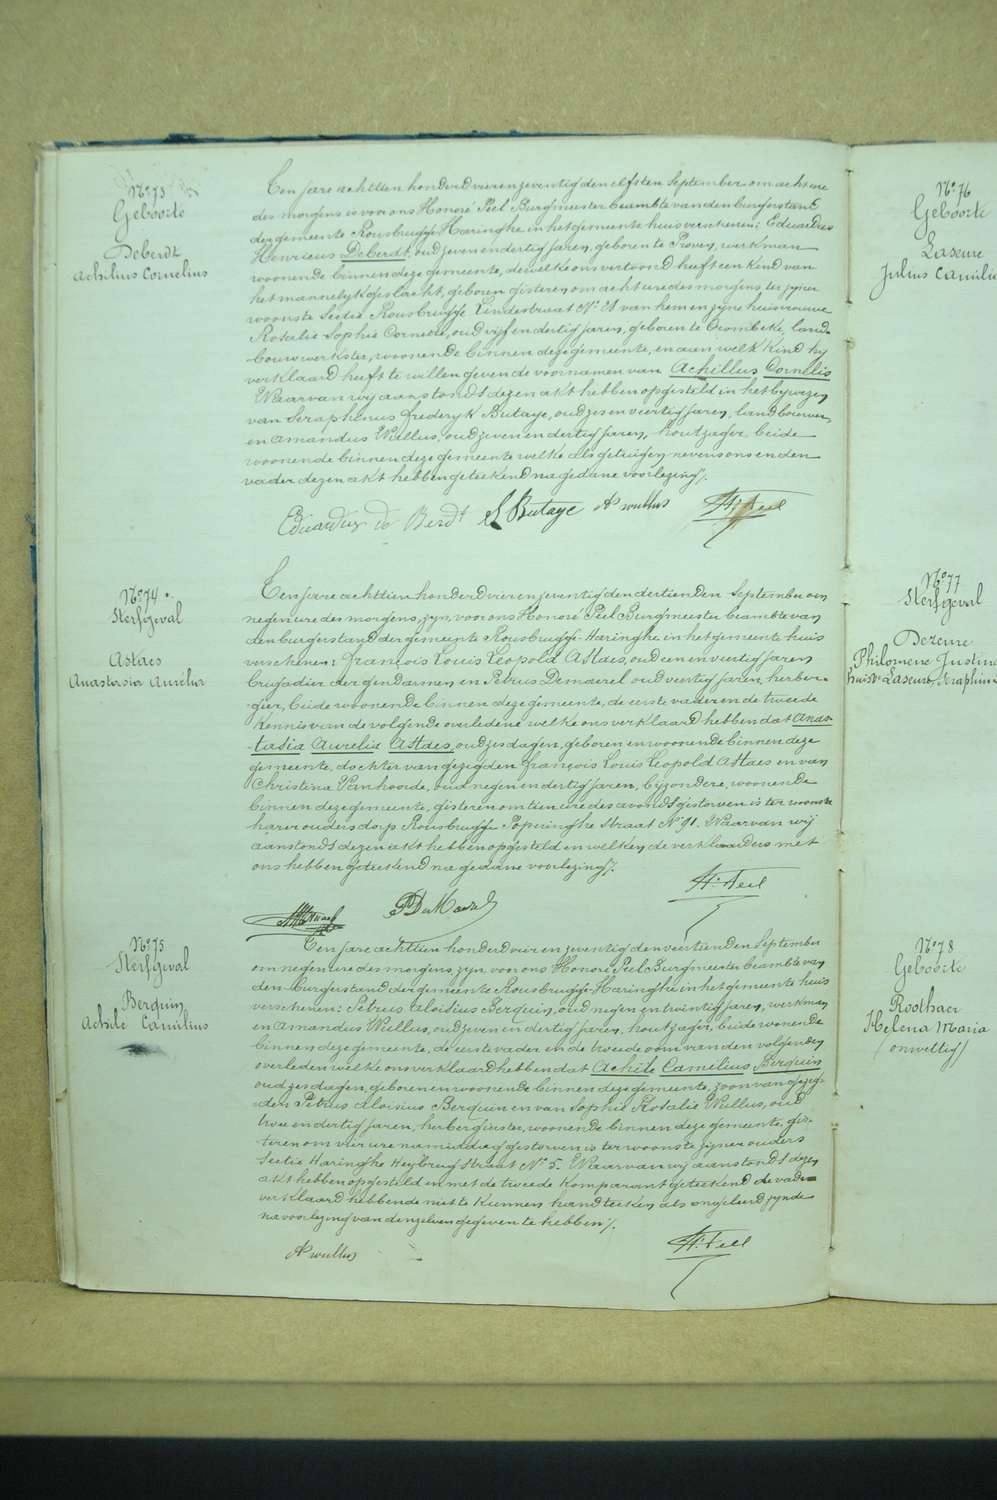 N° 73
Geboorte
Deberdt
Achilius Cornelius
Ten jare achttien honderd vier en zeventig den elfsten September om acht ure
des morgens is voor ons Honoré Peel Burgmeester beambte van den burgerstand
der gemeente Rousbrugge-Haringhe in het gemeente huis verschenen: Eduardus
Henricus Deberdt, oud zeven en dertig jaren, geboren te Proven, werkman
woonende binnen deze gemeente, dewelke ons vertoond heeft een kind van
het mannelyk geslacht, geboren gisteren om acht ure des morgens ter zyner
woonste Sectie Rousbrugge Lindestraat N° 21 van hem en zyne huisvrouwe
Rosalie Sophie Cornette, oud vyf en dertig jaren, geboren te Crombeke, land-
bouwwerkster, woonende binnen deze gemeente, en aan welk kind hy
verklaard heeft te willen geven de voornamen van Achillus Cornelis
Waarvan wy aanstonds dezen akt hebben opgesteld in het bywezen
van Seraphinus Frederyk Butaye, oud zes en veertig jaren, landbouwer
en Amandus Wullus, oud zeven en dertig jaren, houtzager, beide
woonende binnen deze gemeente welke als getuigen nevens ons en den
vader dezen akt hebben geteekend na gedane voorlezing /.
Eduardus de Berdt S Butaye A wullus H. Peel
N° 74
Sterfgeval
Astaes
Anastasia Aurelia
Ten jare achttien honderd vier en zeventig den dertienden September om
negen ure des morgens, zyn, voor ons Honoré Peel Burgmeester beambte van
den burgerstand der gemeente Rousbrugge-Haringhe in het gemeente huis
verschenen: François Louis Leopold Astaes, oud een en veertig jaren
brigadier der gendarmen en Petrus Demaerel oud veertig jaren, herber-
gier, beide woonende binnen deze gemeente, de eerste vader en de tweede
kennis van de volgende overledene welke ons verklaard hebben dat Anas-
tasia Aurelie Astaes, oud zes dagen, geboren en woonende binnen deze
gemeente, dochter van gezegden François Louis Leopold Astaes en van
Christina Vanhoorde, oud negen en dertig jaren, byzondere, woonende
binnen deze gemeente, gisteren om tien ure des avonds gestorven is ter woonste
harer ouders dorp Rousbrugge Poperinghe Straat N° 91. Waarvan wij
aanstonds dezen akt hebben opgesteld en welken de verklaarders met
ons hebben geteekend na gedane voorlezing /.
P DeMaerel H. Peel
N° 75
Sterfgeval
Berquin
Achile Camilius
Ten jare achttien honderd vier en zeventig den veertienden September
om negen ure des morgens zyn, voor ons Honoré Peel Burgmeester beambte van
den burgerstand der gemeente Rousbrugge-Haringhe in het gemeente huis
verschenen: Petrus Aloisius Berquin, oud negen en twintig jaren, werkman
en Amandus Wullus, oud zeven en dertig jaren, houtzager, beide wonende
binnen deze gemeente, de eerste vader en de tweede oom van den volgenden
overleden welke ons verklaard hebben dat Achile Camilius Berquin
oud zes dagen, geboren en woonende binnen deze gemeente, zoon van gezeg-
den Petrus Aloisius Berquin en van Sophie Rosalie Wullus, oud
twee en dertig jaren, herbergierster, woonende binnen deze gemeente, gis-
teren om vier ure namiddag gestorven is ter woonste zyner ouders
Sectie Haringhe Heybrug Straat N° 5. Waarvan wij aanstonds dezen
akt hebben opgesteld en met de tweede komparant geteekend de vader
verklaard hebbende niet te kunnen handteeken als ongeleerd zynde
na voorlezing van denzelven gegeven te hebben /.
A wullus H. Peel
N° 76
Geboorte
Laseure
Julius Camiliu
N° 77
Sterfgeval
Dezeure
Philomene Justine
huisv. Laseure, Seraphin
N° 78
Geboorte
Roothaer
Helena Maria
(onwettig)